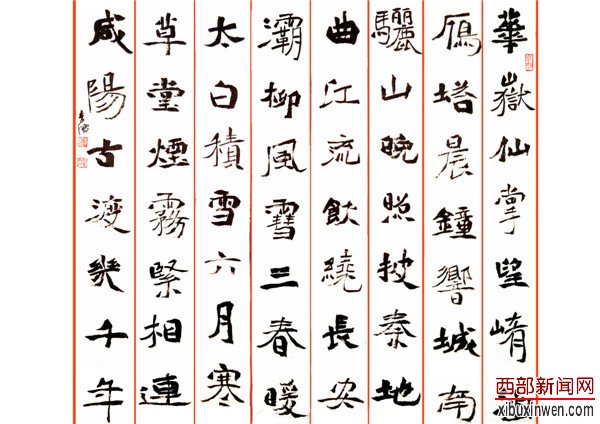 華嶽仙掌望崤
鴈塔晨鐘響城南
驪山晚照披秦地
曲江流飲繞長安
灞柳風雪三春暖
太白積雪六月寒
草堂煙霧緊相連
咸陽古渡幾千年
西部新闻网
xibuxinwen.com